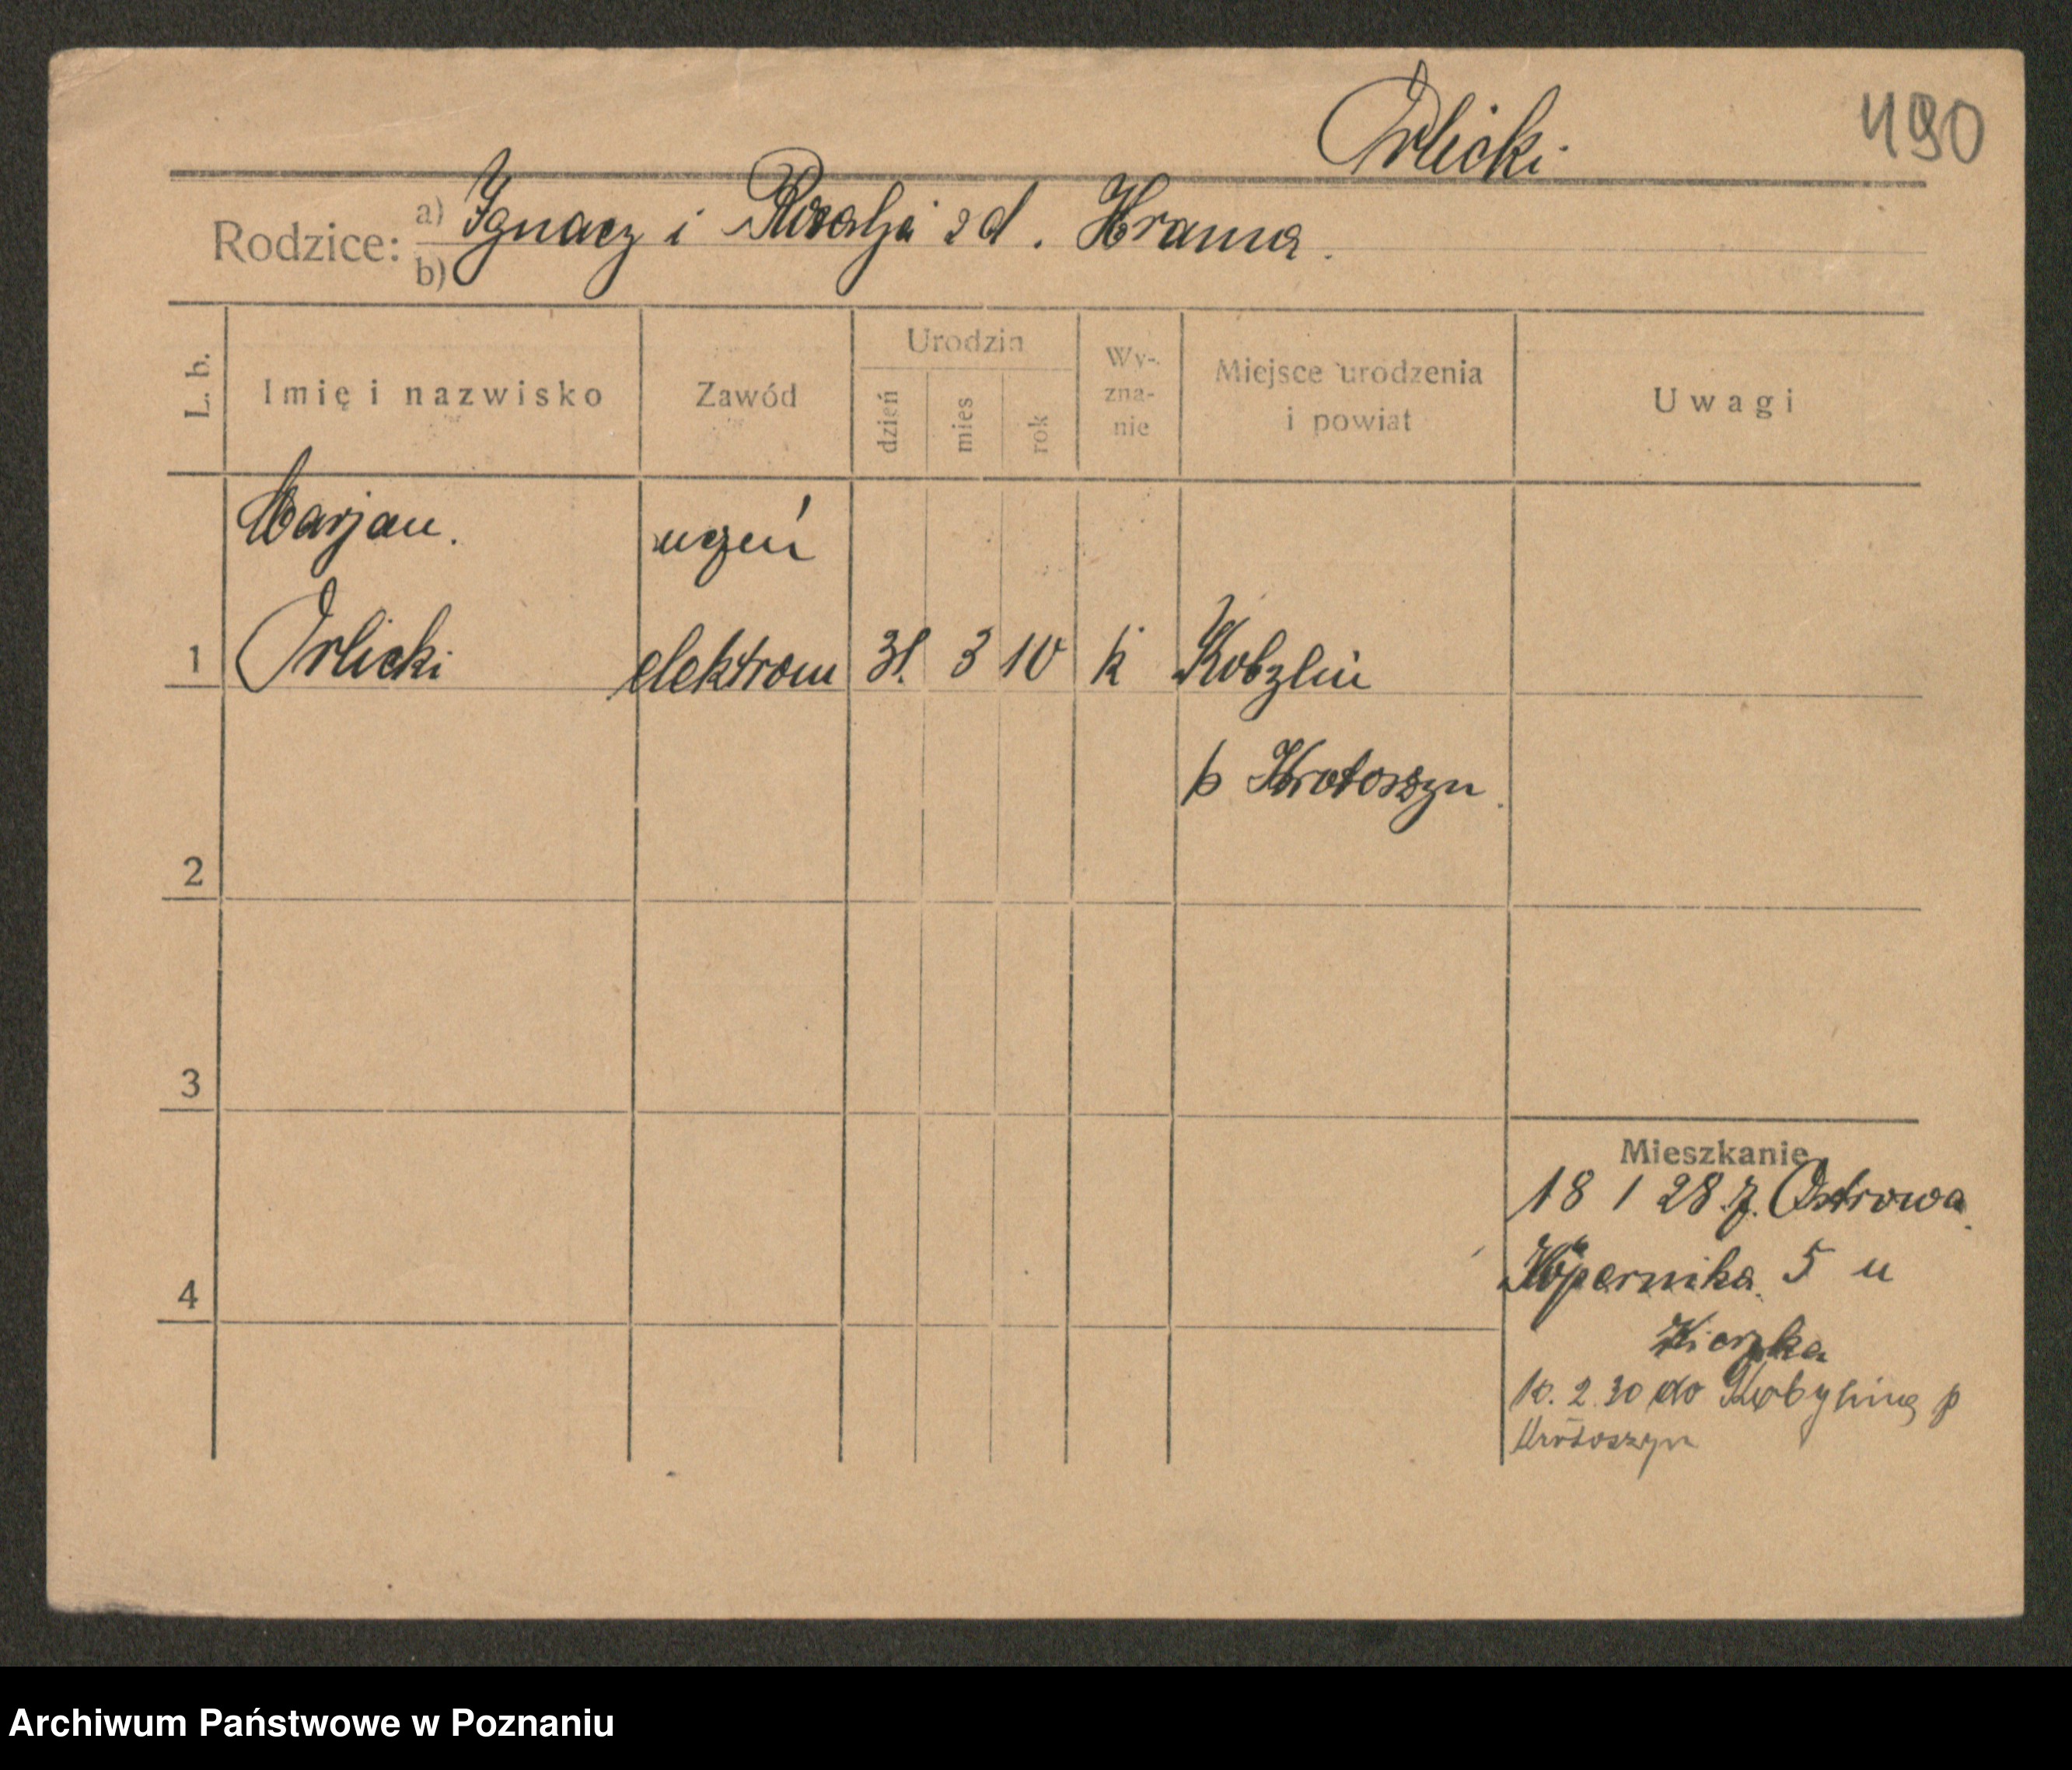 Orlicki
490
Rodzice: a) Ignacy i Rozalja zd. Krama.
b)
L. b.
Imię i nazwisko
Zawód
Urodzin
dzień
mies
rok
Wy-
zna-
nie
Miejsce urodzenia
i powiat
Uwagi
Marjan.
uczeń
1 Orlicki elektrom 31. 3 10 k Kobylin
p Krotoszyn.
2
3
4
Mieszkanie
18 1 28. z. Ostrowa
Kopernika 5 u
10. 2. 30 do Kobylina p
Krotoszyn
Archiwum Państwowe w Poznaniu